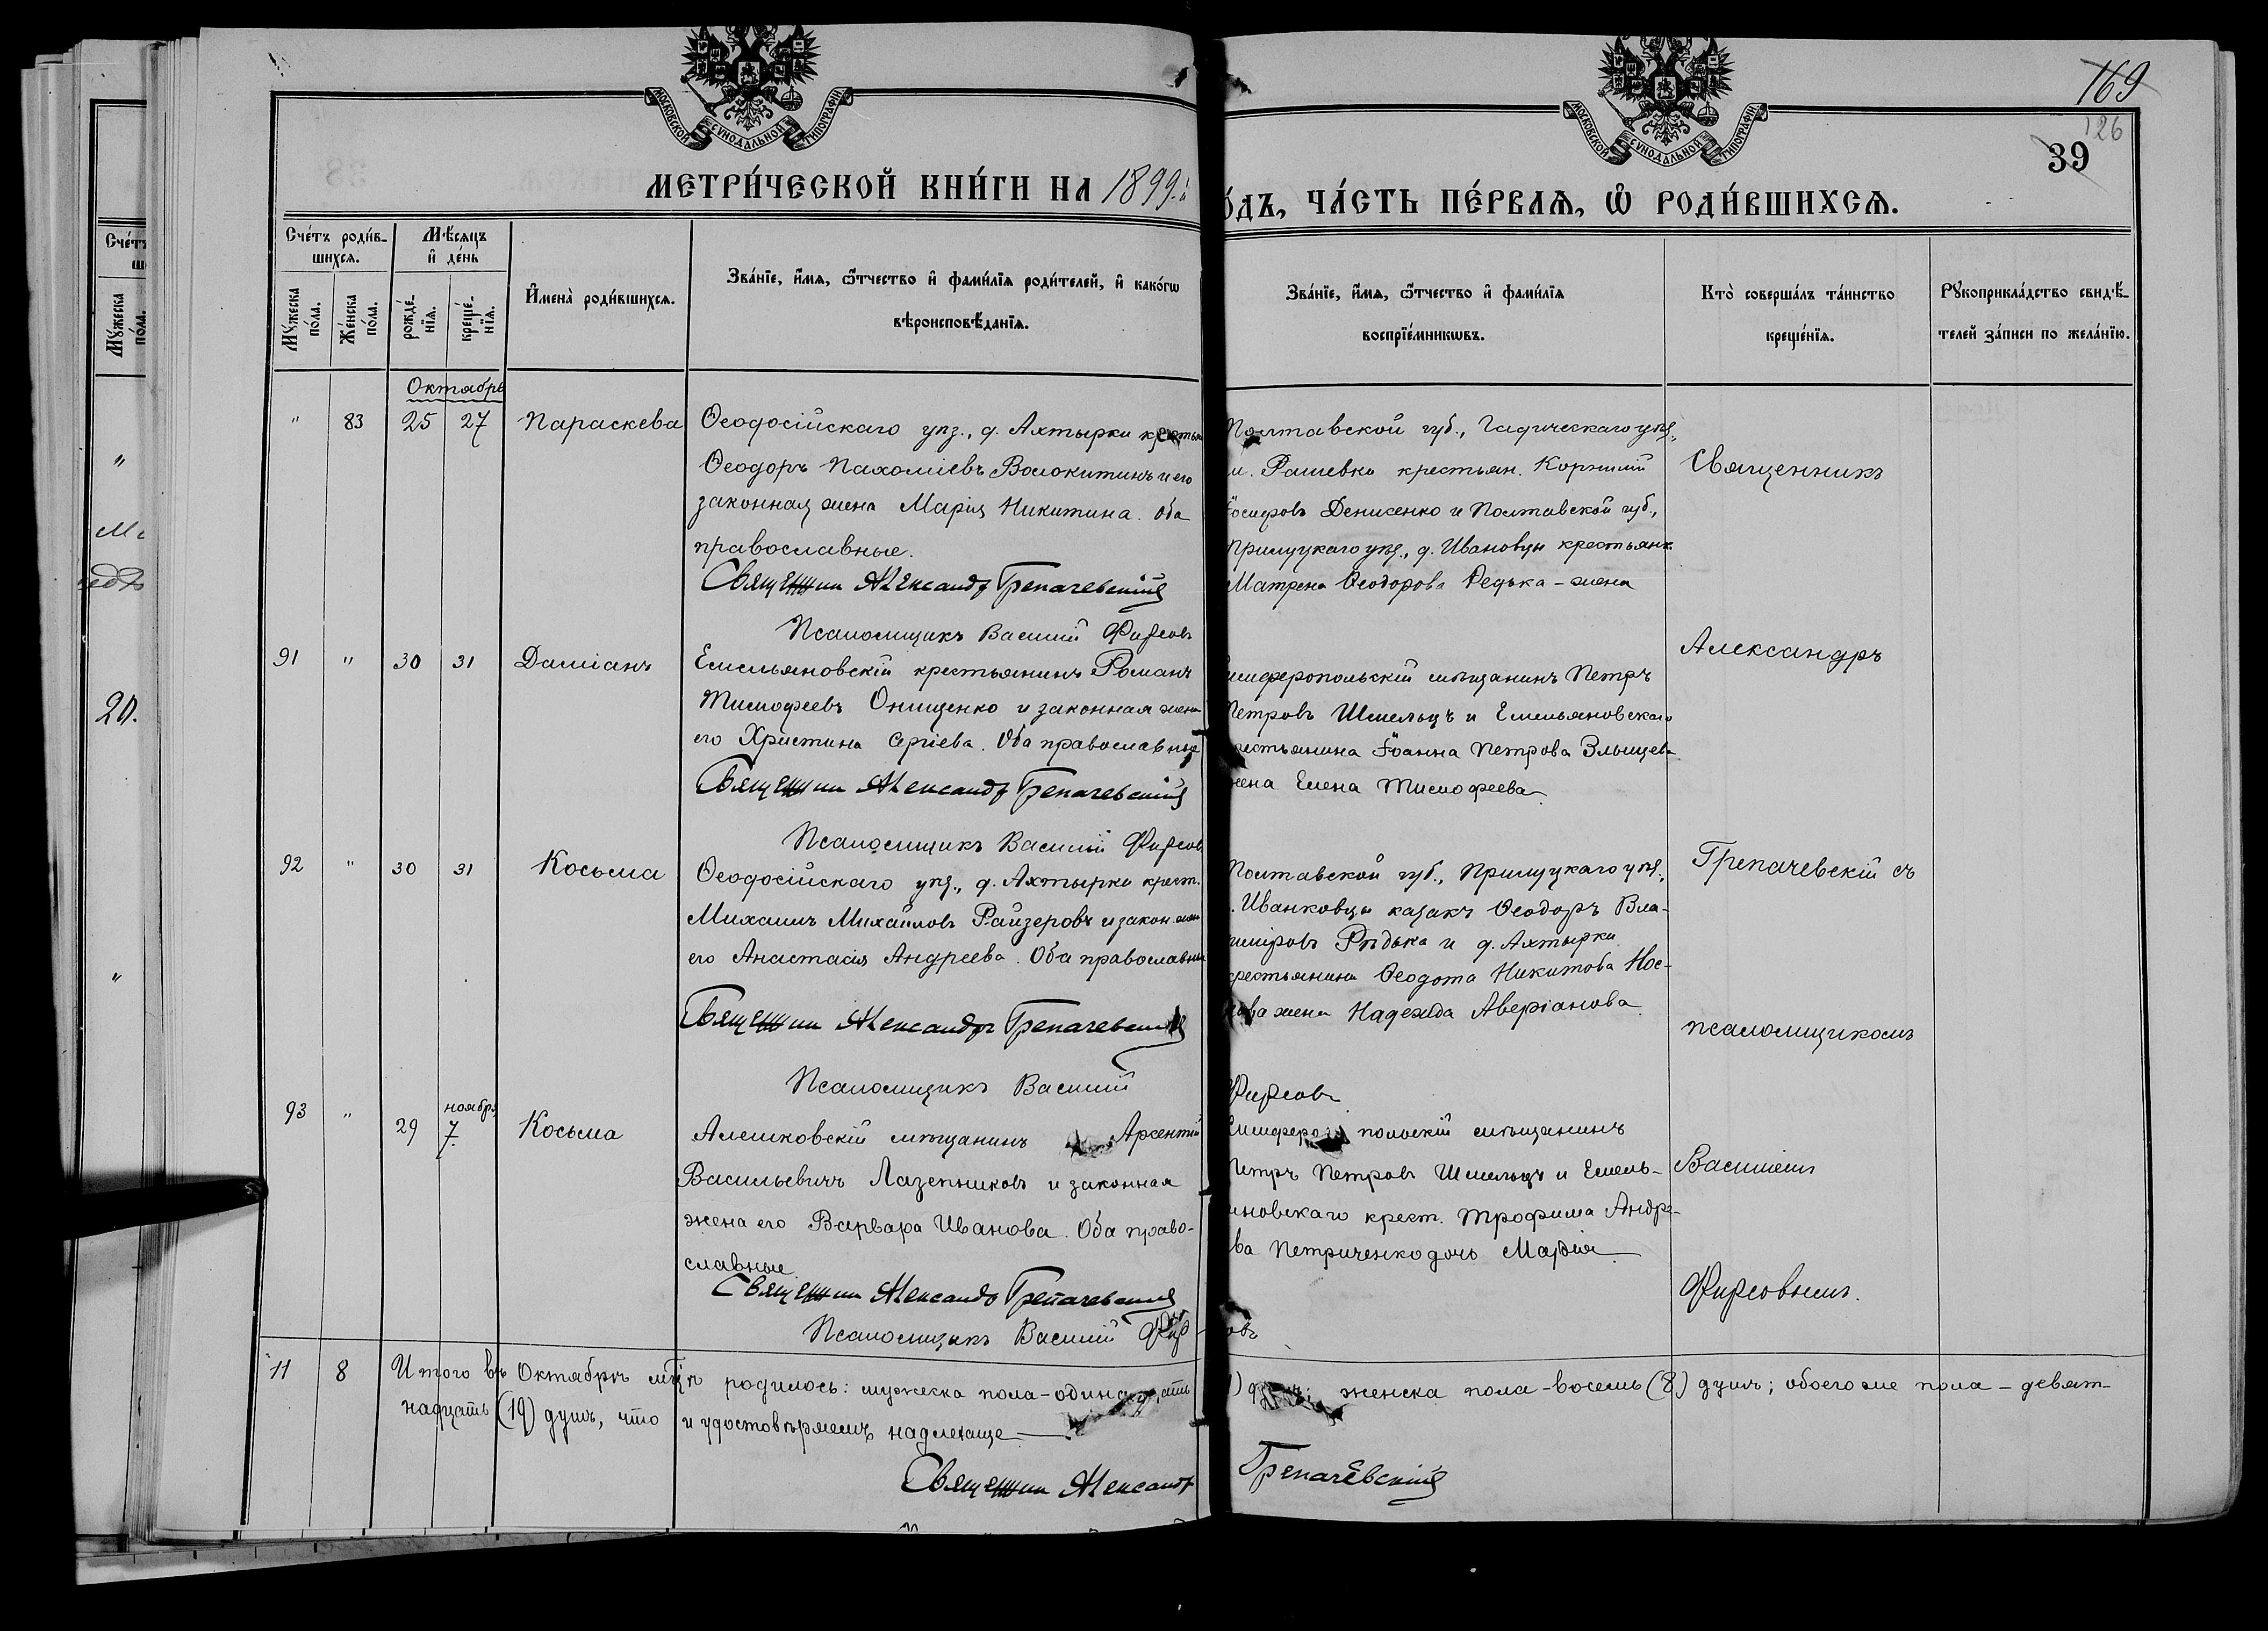 МОСКОВСКОЙ СѴНОДАЛЬНОЙ ТИПОГРАФІИ
МОСКОВСКОЙ СѴНОДАЛЬНОЙ ТИПОГРАФІИ
169
126
39
МЕТРИ́ЧЕСКОЙ КНИ́ГИ НА 1899.й
О́ДЪ, ЧА́СТЬ ПЕ́РВАѦ, Ѡ҆ РОДИ́ВШИХСѦ.
Сче́тъ роди́в-
шихсѧ.
Мѣ́сѧцъ
и҆ де́нь
Мꙋ́жеска
по́ла.
Же́нска
по́ла.
рожде́-
нїѧ.
креще́-
нїѧ.
И҆мена̀ роди́вшихсѧ.
Зва́нїе, и҆́мѧ, ѻ҆́тчество и҆ фами́лїѧ роди́телей, и҆ како́гѡ
вѣроисповѣ́данїѧ.
Зва́нїе, и҆́мѧ, ѻ҆́тчество и҆ фами́лїѧ
воспрїе́мникѡвъ.
Кто̀ соверша́лъ та́инство
креще́нїѧ.
Рꙋкоприкла́дство свидѣ́-
телей за́писи по жела́нїю.
Октябрь
" 83 25 27 Параскева
Ѳеодосійскаго уѣз., д. Ахтырки крестьян
Ѳеодоръ Пахоміевъ Волокитинъ и его
законная жена Марія Никитина. Оба
православные.
Священник Александр Грепачевский
Псаломщикъ Василій Фирсовъ
Полтавской губ., Гадяческаго уѣз.,
м. Рашевки крестьян. Корнилій
Іосифовъ Денисенко и Полтавской губ.,
Прилуцкаго уѣз., д. Ивановцы крестьянк.
Матрена Ѳеодорова Редька – жена
Священникъ
91 " 30 31 Даміанъ
Емельяновскій крестьянинъ Романъ
Тимофеевъ Онищенко и законная жена
его Христина Сергіева. Оба православные
Священник Александр Грепачевский
Псаломщикъ Василій Фирсов
имферопольскій мѣщанинъ Петръ
Петровъ Шмельцъ и Емельяновскаго
рестьянина Іоанна Петрова
жена Елена Тимофеева
Александръ
92 " 30 31 Косьма
Ѳеодосійскаго уѣз., д. Ахтырки крест.
Михаилъ Михайловъ Райзеровъ и закон. жена
его Анастасія Андреева. Оба православные
Священник Александръ Грепачевский
Псаломщикъ Василій
Фирсовъ
Полтавской губ., Прилуцкаго уѣз.,
Иванковцы казакъ Ѳеодоръ Вла-
иміровъ Рѣдька и д. Ахтырки
крестьянина Ѳеодота Никитова Нос-
ова жена Надежда Аверіанова
Грепачевскій съ
псаломщикомъ
93 " 29 ноябр. 7. Косьма
Алешковскій мѣщанинъ Арсентій
Васильевичъ Лазепниковъ и законная
жена его Варвара Иванова. Оба право-
славные
Священник Александр Грепачевский
Псаломщикъ Василій Фирсовъ
Симферопольскій мѣщанинъ
Петръ Петровъ Шмельцъ и Емель-
яновскаго крест. Трофима Андре-
ва Петриченко дочь Марія
Василіемъ
Фирсовымъ.
11 8 Итого въ Октябрѣ мцѣ родилось: мужеска пола – одинадцать
) душъ; женска пола – восемь (8) душъ; обоего же пола – девят-
надцать (19) душъ, что и удостовѣряемъ надлежаще
Священник Александр Грепачевский